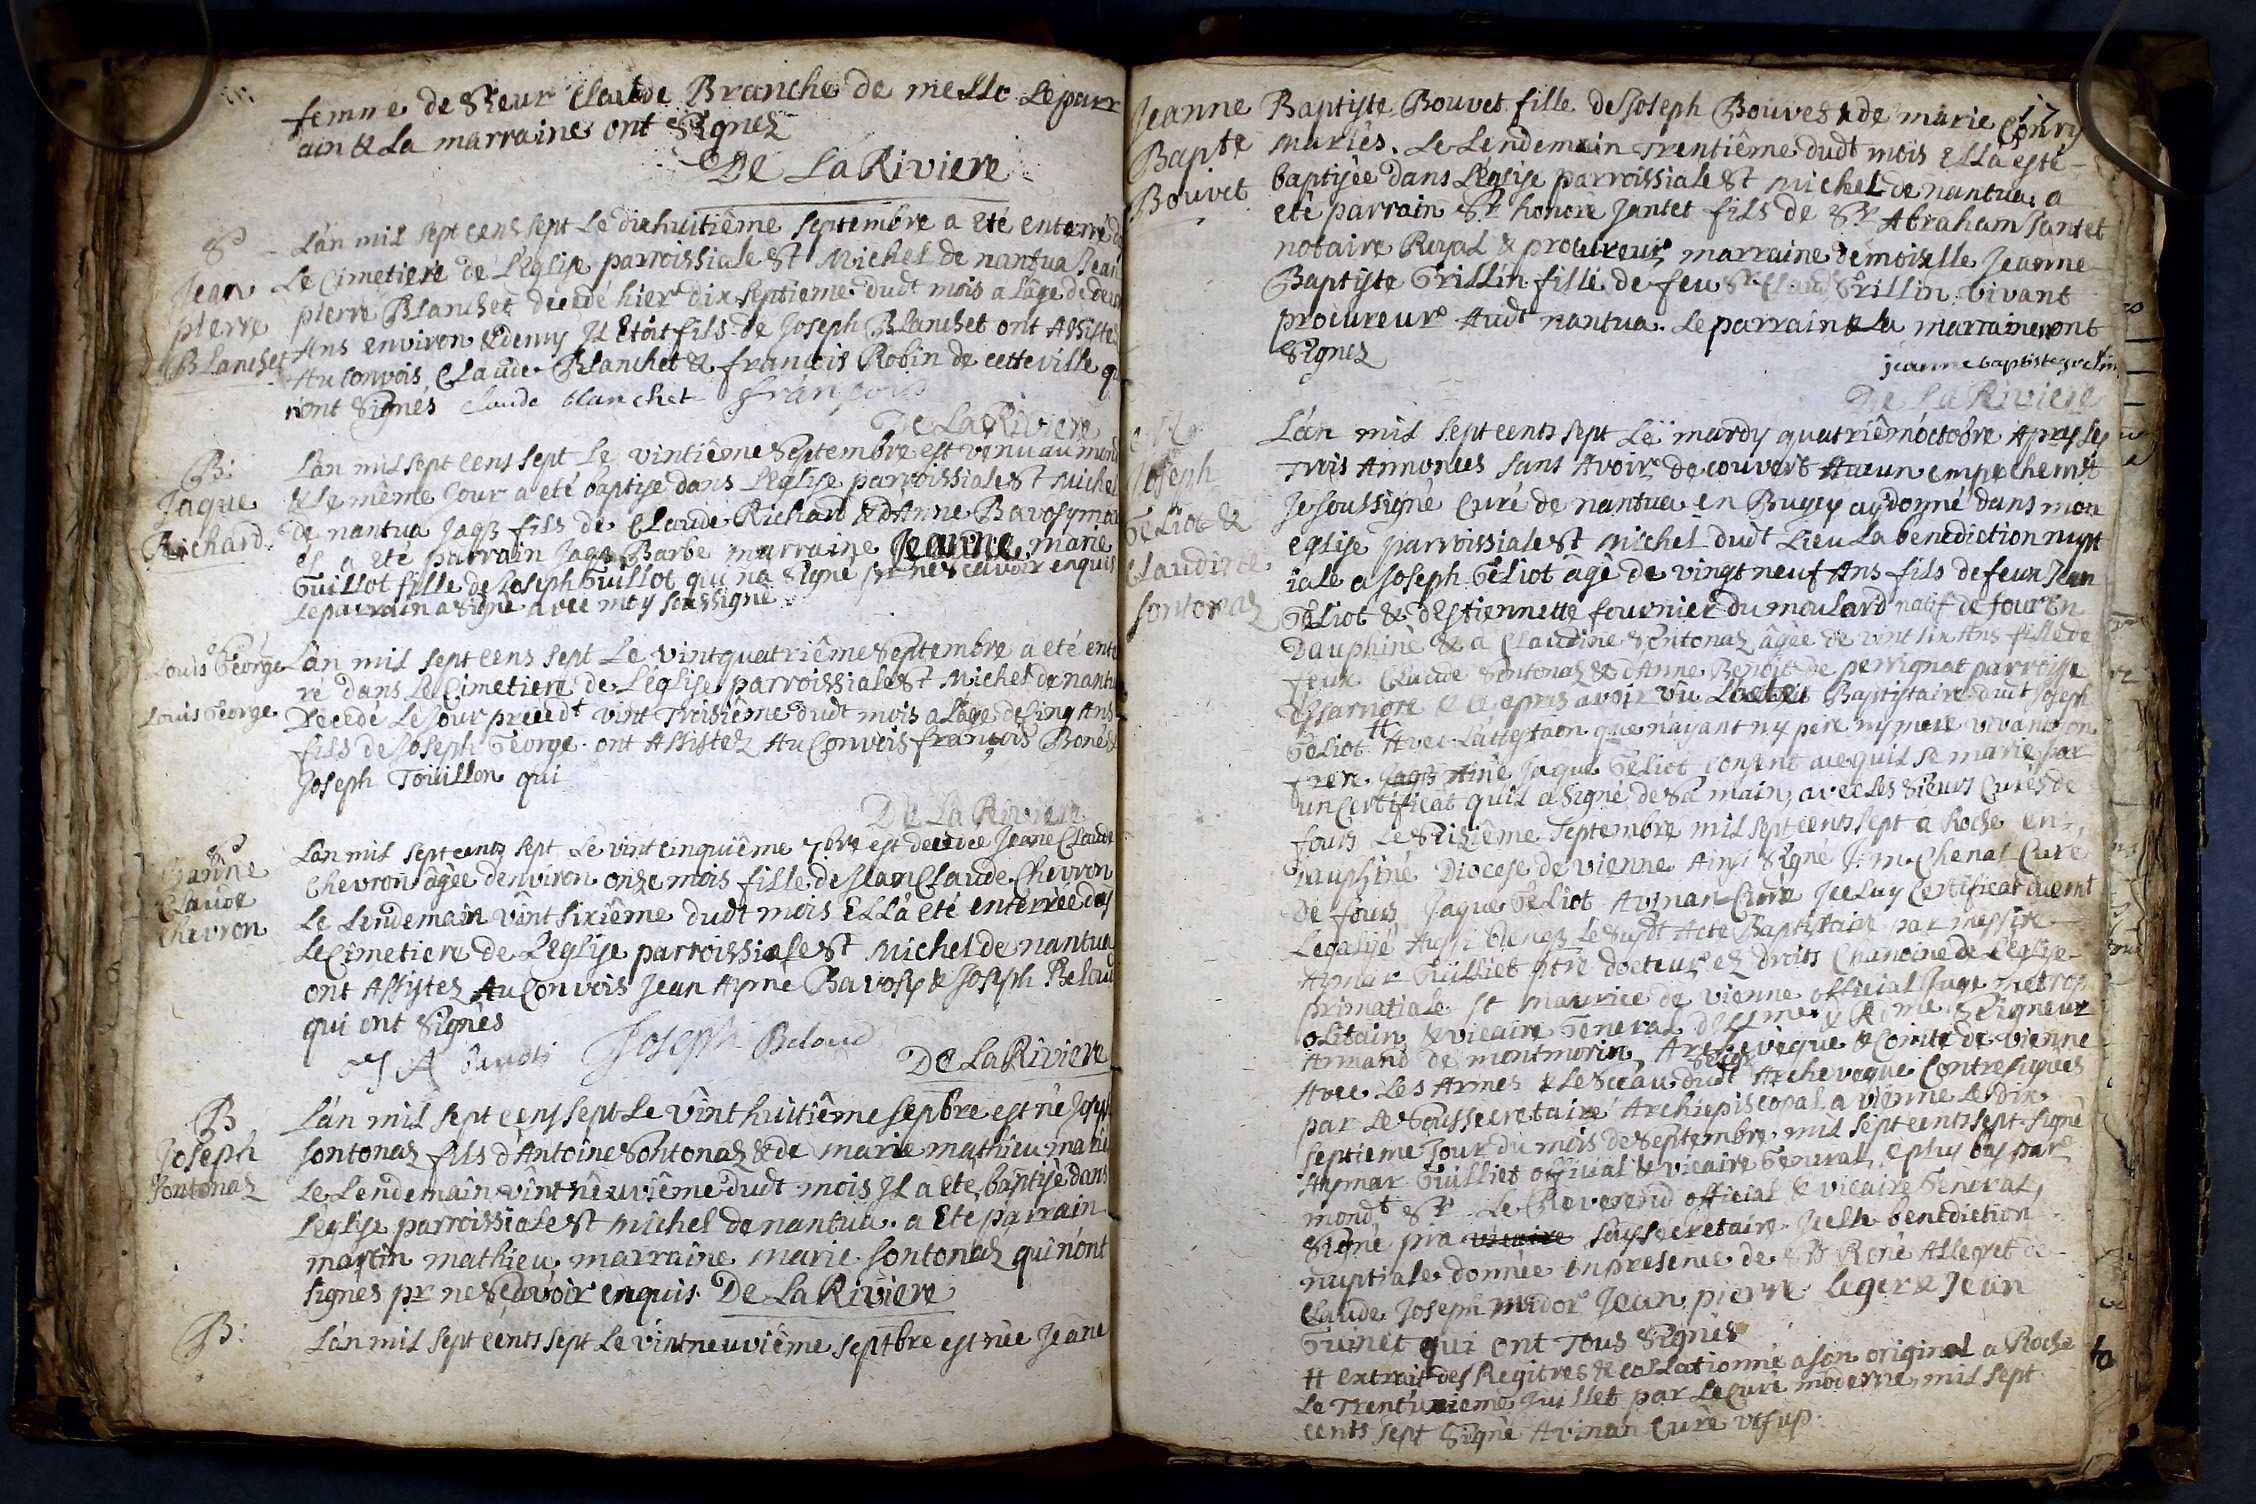 femme de Sieur Claude Branche de mello Leparr
ain & La marraine ont Signez
De La Riviere
S
Jean
pierre
Blanchet
L'an mil sept cens sept Le dixhuitième septembre a eté enterré
Le Cimetiere de L'eglise parroissiale St Michel de nantua Jean
pierre Blanchet décédé hier dix septieme dudt mois a L'âge de
Ans environ & demy Il Etoit fils de Joseph Blanchet ont Assistez
Au Convois Claude Blanchet & françois Robin de cette ville
n'ont Signés Claude blanchet françois
De La Riviere
B:
Jaque
Richard
L'an mil sept cens sept Le vintième Septembre est venu au monde
& Le même Jour a eté baptisé dans L'eglise parroissiale St Michel
de nantua Jaqs fils de Claude Richard & d'Anne Bavosymari
és a eté parrain Jaqs Barbe marraine Jeanne marie
Guillot fille de Joseph Guillot qui n'a Signé pr ne Scavoir enquis
Le parrain a Signé avec moy soussigné
Louis George
Louis George
L'an mil sept cens sept Le vintquatrième Septembre a eté enter
ré dans Le Cimetiere de L'eglise parroissiale St Michel de nantu
Decedé Le Jour precedt vint Troisième dudt mois a L'âge de Cinq Ans
fils de Joseph George ont Assistez Au Convois françois Bone &
Joseph Touillon qui
De La Riviere
S
Jeanne
Claude
Chevron
L'an mil sept cents sept Le vint cinquième 7bre est decedée Jeane Claude
Chevron âgée d'environ onze mois fille de Jean Claude Chevron
Le Lendemain vint sixième dudt mois Ell'a eté enterrée das
Le Cimetiere de L'eglise parroissiale St Michel de nantua
ont Assistez Au Convois Jean Aymé Bavosy & Joseph Beloud
qui ont Signés
J A Joseph Beloud
De La Riviere
B
Joseph
Sontonaz
L'an mil sept cens sept Le vint huitième sepbre est né Joseph
Sontonaz fils d'Antoine Sontonaz & de marie mathieu mariés
Le Lendemain vint neuvième dudt mois Il a eté baptisé dans
L'eglise parroissiale St Michel de nantua. a Eté parrain
martin mathieu marraine marie Sontonaz qui n'ont
signés pr ne Scavoir enquis De La Riviere
B:
L'an mil sept cents sept Le vint neuvième septbre est née Jeane
17
Jeanne
Bapte
Bouvet
Baptiste Bouvet fille de Joseph Bouvet & de marie
mariés. Le Lendemain Trentième dudt mois Ell'a esté
baptisée dans L'eglise parroissiale St Michel de nantua. a
eté parrain Sr honoré Jantet fils de Sr Abraham Jantet
notaire Royal & procureur, marraine demoiselle Jeanne
Baptiste Grillin fille de feu Sr Claude Grillin vivant
procureur Audt nantua. Le parrain & La marraine ont
Signez
jeanne baptiste grelin
De La Riviere
Joseph
Geliot &
Claudine
Sontonaz
L'an mil sept cents sept Le mardy quatrièm'octobre Apres les
Trois Annonces sans Avoir decouvert Aucun empechemt
Je soussigné Curé de nantua en Bugey ay donné dans mon
eglise parroissiale St Michel dudt Lieu La benediction nupt
iale a Joseph Geliot agé de vingt neuf Ans fils de feux Jean
Geliot & d'Estiennette fournier du moulard natif de four En
Dauphiné & a Claudine Sontonaz âgée de vint six Ans fille de
feux Claude Sontonaz & d'Anne Benoit de perrignat parroisse
dessarnore & ce apres avoir vû Baptistaire dudt Joseph
Geliot # Avec L'attestaon que n'ayant ny pere ny mere vivants son
frere Jaqs Ainé Jaque Geliot consent a ce quil se marie par
un Certificat quil a Signé de sa main, avec Les Sieurs Curés de
fours Le Seisième Septembre mil sept cents sept a Roche en
Dauphiné Diocese de Vienne Ainsi Signé J. m. Chenal Curé
De fours Jaque Geliot Avinan Curé Icelluy Certificat duemt
Legalisé Aussi Le susdt Acte Baptistaire par messire
Aymar Guilliet ptre docteur ez droits Chanoine de L'eglise
primatiale St maurice de vienne official Juge metrop
olitain & vicaire General d'Illme & Rdme Seigneur
Armand de montmorin Archevêque & Comte de Vienne
Avec Les Armes & Le Sceau dudt Seigr Archevêque Contresignées
par Le Soussecretaire Archiepiscopal a vienne Le dix
septieme Jour du mois de Septembre mil sept cents sept. signé
Aymar Guilliet official & vicaire General, & plus bas par
mondt Sr Le Reverend official & vicaire General,
signé pra vicaire soussecretaire. Icelle benediction
nuptiale donnée en presence de Sr René Allegret de
Claude Joseph midor Jean pierre Leger & Jean
Guinet qui ont Tous Signés
# extrait des Regitres & collationné a son original a Roche
Le Trentunieme Juillet par Le Curé moderne mil sept
cents sept Signé Avinan Curé vt sup.